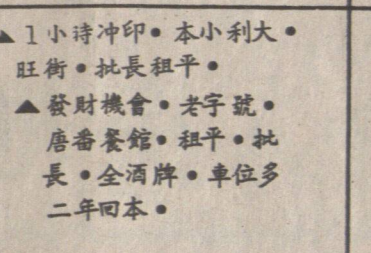 ▲1小待冲印•本小利大•
旺街•批長租平•
▲發財機會•老字號•
唐番餐館•租平•批
長•全酒牌•車位多
二年回本•